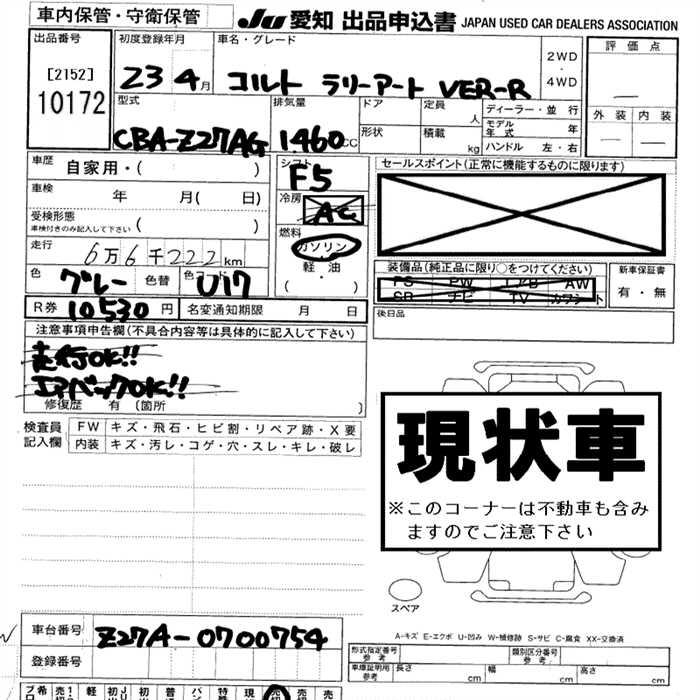 車内保管・守衛保管
JU 愛知 出品申込書 JAPAN USED CAR DEALERS ASSOCIATION
出品番号
[2152]
10172
初度登録年月
23 4月
車名・グレード
コルト ラリーアート VER-R
2WD
・
4WD
評価点
外装 内装
型式
CBA-Z27AG
排気量
1460cc
ドア
形状
定員
人
積載
kg
ディーラー・並行
モデル年式 年
ハンドル 左・右
車歴
自家用・( )
車検
年 月( 日)
受検形態
車検付きのみ記入して下さい ( )
走行
6万6千222km
色
グレー
色替
色コード
U17
シフト
F5
冷房
AC
燃料
ガソリン
軽・油
( ・ )
セールスポイント(正常に機能するものに限ります)
装備品(純正品に限り○をつけてください)
PS PW エアB AW
SR ナビ TV カワシート
新車保証書
有・無
後日品
R券 10530円
名変通知期限 月 日
注意事項申告欄(不具合内容等は具体的に記入して下さい)
走行OK!!
エアバックOK!!
修復歴 有 (箇所 )
検査員記入欄
FW キズ・飛石・ヒビ割・リペア跡・X要
内装 キズ・汚レ・コゲ・穴・スレ・キレ・破レ
現状車
※このコーナーは不動車も含み
ますのでご注意下さい
スペア
A-キズ E-エクボ U-凹み W-補修跡 S-サビ C-腐食 XX-交換済
車台番号
Z27A-0700754
登録番号
形式指定番号
参考
類別区分番号
参考
車庫証明用
参考
長さ cm
幅 cm
高さ cm